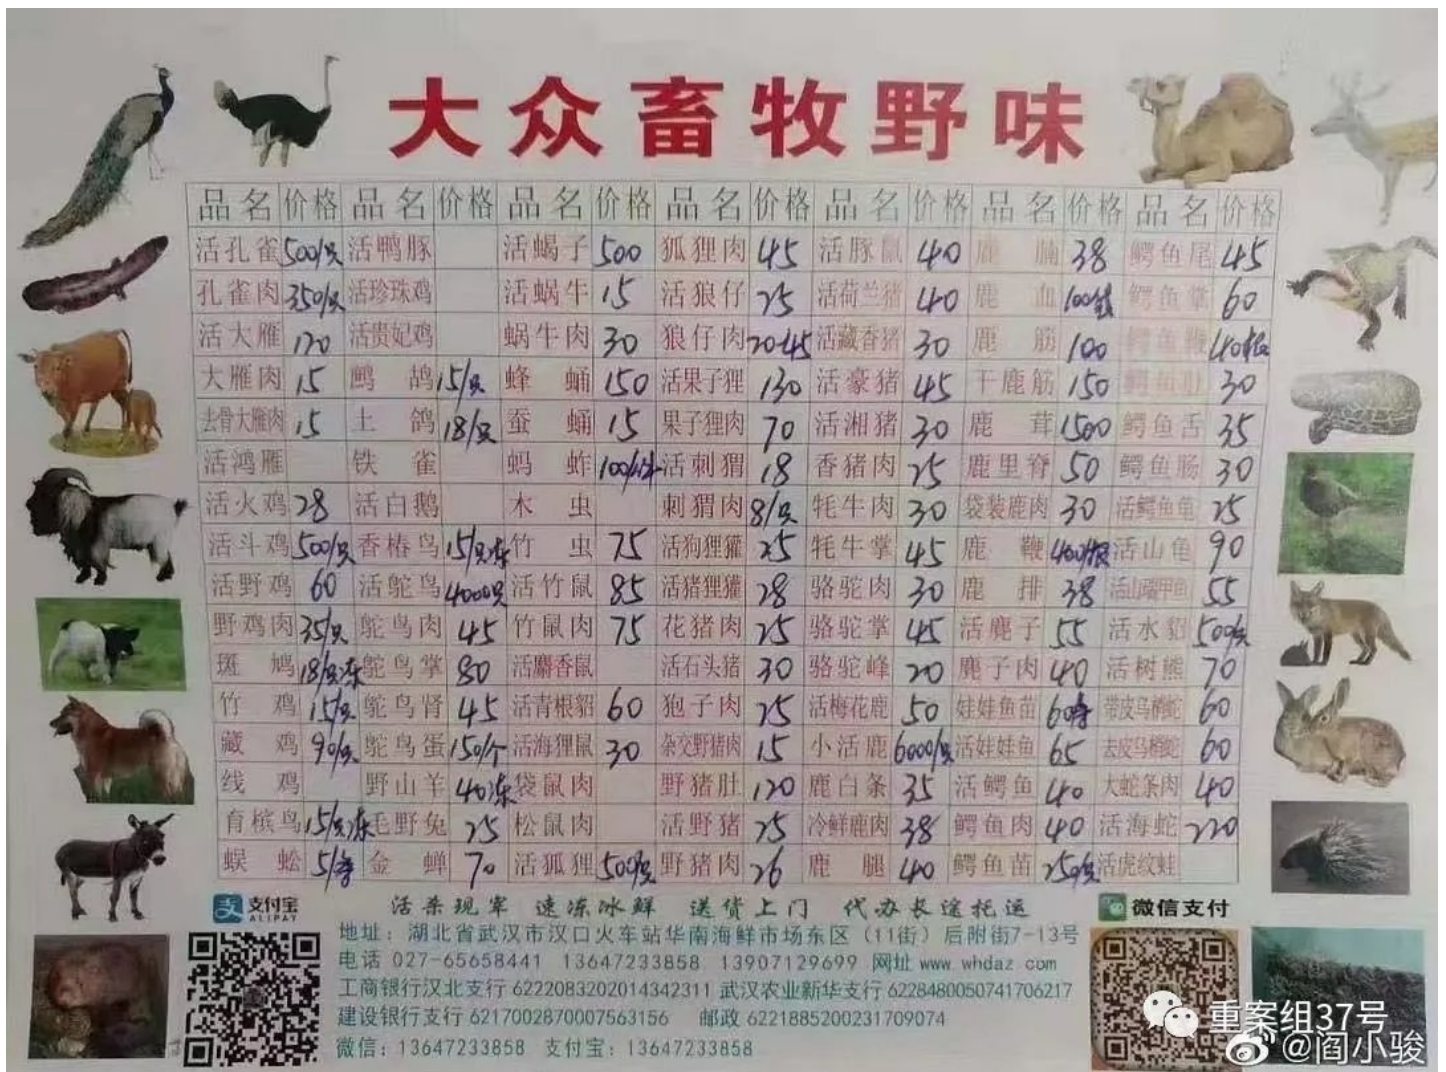 大众畜牧野味
品名 价格 品名 价格 品名 价格 品名 价格 品名 价格 品名 价格 品名 价格
活孔雀 500/只 活鸭豚 活蝎子 500 狐狸肉 45 活豚鼠 40 鹿腩 38 鳄鱼尾 45
孔雀肉 350/只 活珍珠鸡 活蜗牛 15 活狼仔 25 活荷兰猪 40 鹿血 鳄鱼掌 60
活大雁 120 活贵妃鸡 蜗牛肉 30 狼仔肉 20-45 活藏香猪 30 鹿筋 100 鳄鱼鞭 40/根
大雁肉 15 鹧鸪 15/只 蜂蛹 150 活果子狸 130 活豪猪 45 干鹿筋 150 鳄鱼肚 30
去骨大雁肉 15 土鸽 18/只 蚕蛹 15 果子狸肉 70 活湘猪 30 鹿茸 1500 鳄鱼舌 35
活鸿雁 铁雀 蚂蚱 活刺猬 18 香猪肉 25 鹿里脊 50 鳄鱼肠 30
活火鸡 28 活白鹅 木虫 刺猬肉 8/只 牦牛肉 30 袋装鹿肉 30 活鳄鱼龟 25
活斗鸡 500/只 香椿鸟 15/只冻 竹虫 75 活狗狸獾 25 牦牛掌 45 鹿鞭 400/根 活山龟 90
活野鸡 60 活鸵鸟 4000只 活竹鼠 85 活猪狸獾 28 骆驼肉 30 鹿排 38 活山瑞甲鱼 55
野鸡肉 35/只 鸵鸟肉 45 竹鼠肉 75 花猪肉 25 骆驼掌 45 活麂子 55 活水貂 500/只
斑鸠 18/只冻 鸵鸟掌 80 活麝香鼠 活石头猪 30 骆驼峰 20 麂子肉 40 活树熊 70
竹鸡 15/只 鸵鸟肾 45 活青根貂 60 狍子肉 25 活梅花鹿 50 娃娃鱼苗 带皮乌梢蛇 60
藏鸡 90/只 鸵鸟蛋 150/个 活海狸鼠 30 杂交野猪肉 15 小活鹿 6000/只 活娃娃鱼 65 去皮乌梢蛇 60
线鸡 野山羊 40冻 袋鼠肉 野猪肚 120 鹿白条 35 活鳄鱼 40 大蛇条肉 40
育槟鸟 15/只冻 毛野兔 25 松鼠肉 活野猪 25 冷鲜鹿肉 38 鳄鱼肉 40 活海蛇 220
蜈蚣 金蝉 70 活狐狸 500/只 野猪肉 26 鹿腿 40 鳄鱼苗 250/只 活虎纹蛙
支付宝
ALIPAY
活杀现宰 速冻冰鲜 送货上门 代办长途托运
微信支付
地址：湖北省武汉市汉口火车站华南海鲜市场东区（11街）后附街7-13号
电话 027-65658441 13647233858 13907129699 网址 www whdaz com
工商银行汉北支行 6222083202014342311 武汉农业新华支行 6228480050741706217
建设银行支行 6217002870007563156 邮政 6221885200231709074
微信：13647233858 支付宝：13647233858
重案组37号
@阎小骏